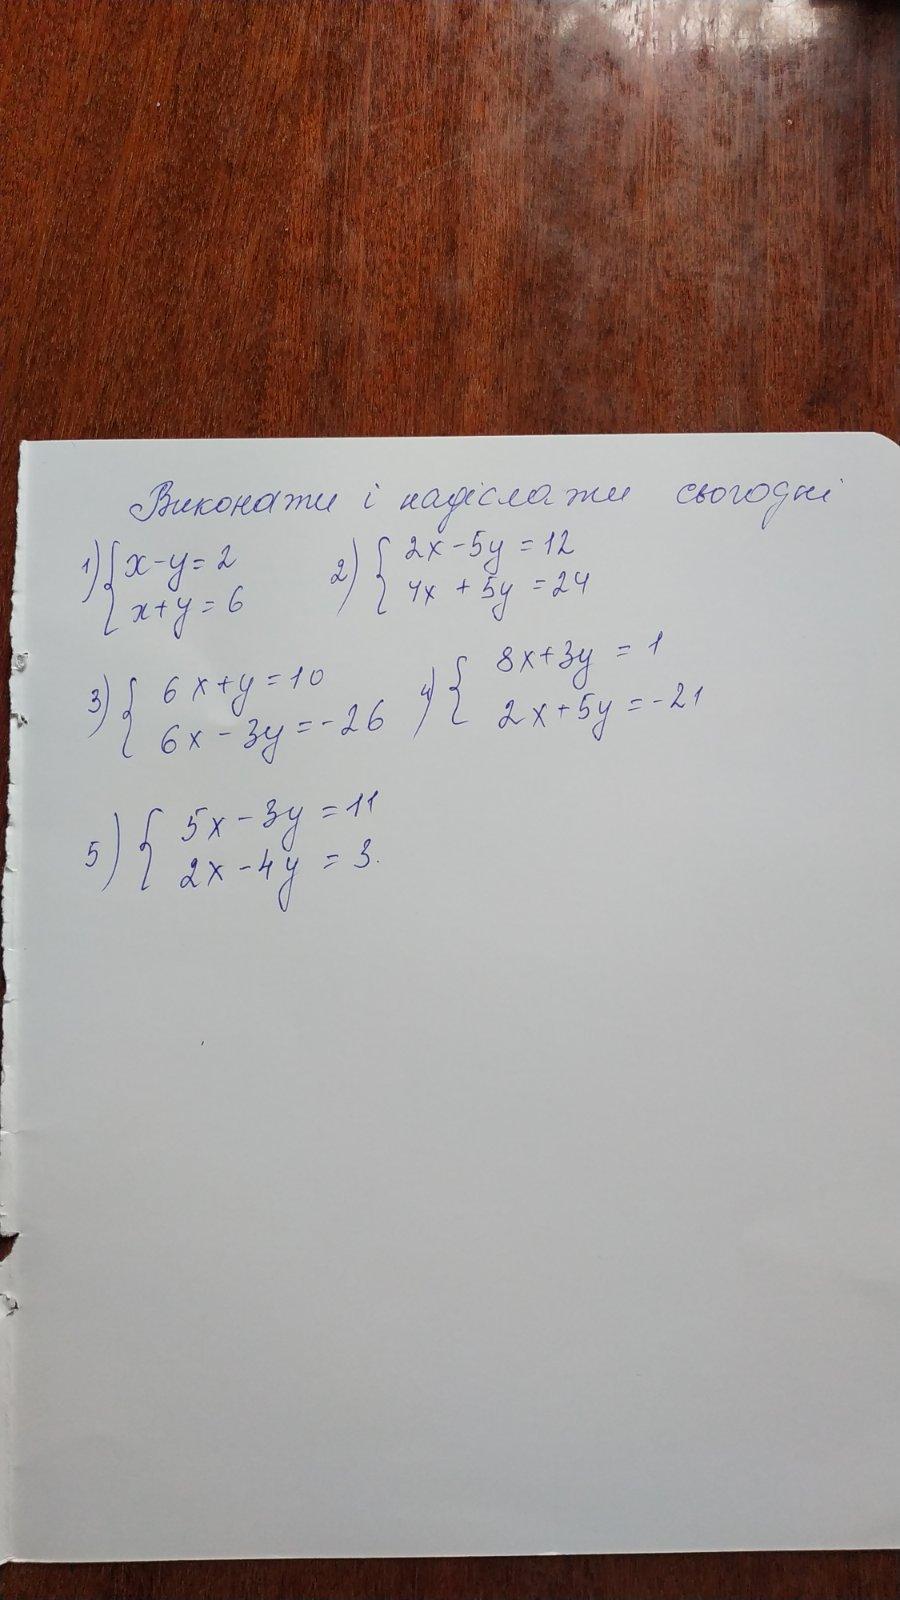 Виконати і надіслати сьогодні
1) { x-y=2
x+y=6
2) { 2x-5y=12
4x+5y=24
3) { 6x+y=10
6x-3y=-26
4) { 8x+3y=1
2x+5y=-21
5) { 5x-3y=11
2x-4y=3.